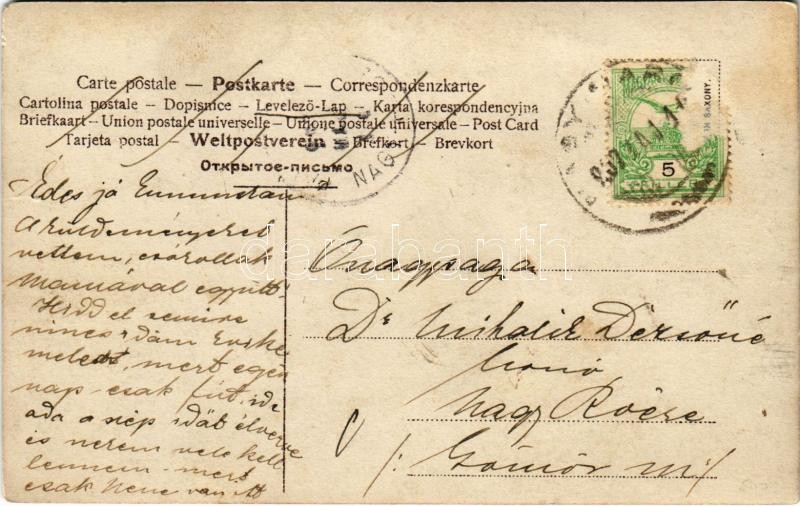 Carte postale — Postkarte — Correspondenzkarte
Cartolina postale – Dopisnice – Levelező-Lap – Karta korespondencyjna
Briefkaart – Union postale universelle – Unione postale universale – Post Card
Tarjeta postal – Weltpostverein – Brefkort – Brevkort
Открытое-письмо
NAG
5
SAXONY.
Édes jó
A küldeményeket
vettem, csókollak
Mamával együtt.
Hidd el semmire
nincs időm
mert egész
nap csak fut, ide
oda a nép időt élvezve
és nekem vele kell
lennem – mert
csak Nene van itt
Őnagysága
Dr Mihalik Dezsőné
Nagy Rőcze
/: Gömör m:/
darabanth